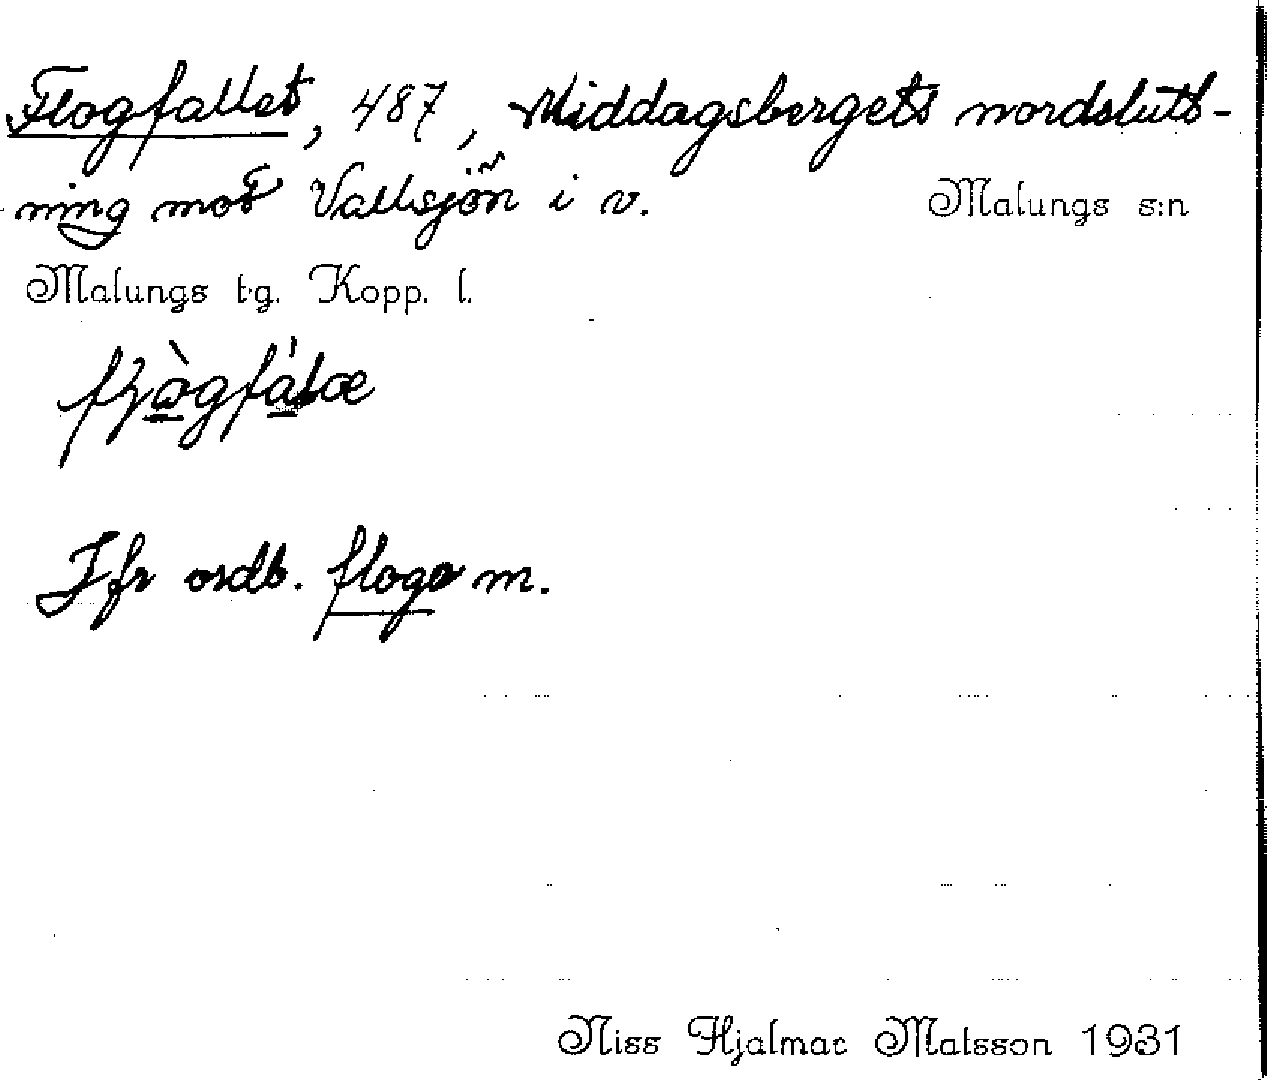 Flogfallet, 487, Middagsbergets nordslutt-
ning mot Vallsjön i v. Malungs s:n
Malungs tg. Kopp. l.
Jfr ordb. floge m.
Niss Hjalmar Matsson 1931